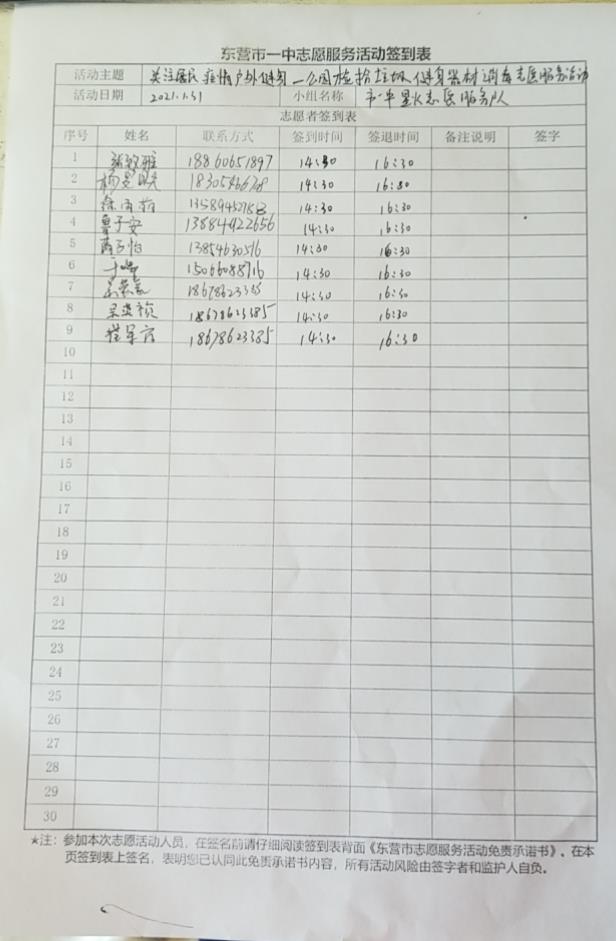 东营市一中志愿服务活动签到表
活动主题 关注居民疫情户外健身—公园捡拾垃圾 健身器材消毒志愿服务活动
活动日期 2021.1.31 小组名称 志愿服务队
志愿者签到表
序号 姓名 联系方式 签到时间 签退时间 备注说明 签字
1 18860651897 14:30 16:30
2 14:30 16:30
3 14:30 16:30
4 子安 13884922656 14:30 16:30
5 13854630516 14:30 16:30
6 15066088716 14:30 16:30
7 14:30 16:30
8 18678623385 14:30 16:30
9 18678623385 14:30 16:30
10
11
12
13
14
15
16
17
18
19
20
21
22
23
24
25
26
27
28
29
30
★注：参加本次志愿活动人员，在签名前请仔细阅读签到表背面《东营市志愿服务活动免责承诺书》。在本
页签到表上签名，表明您已认同此免责承诺书内容，所有活动风险由签字者和监护人自负。